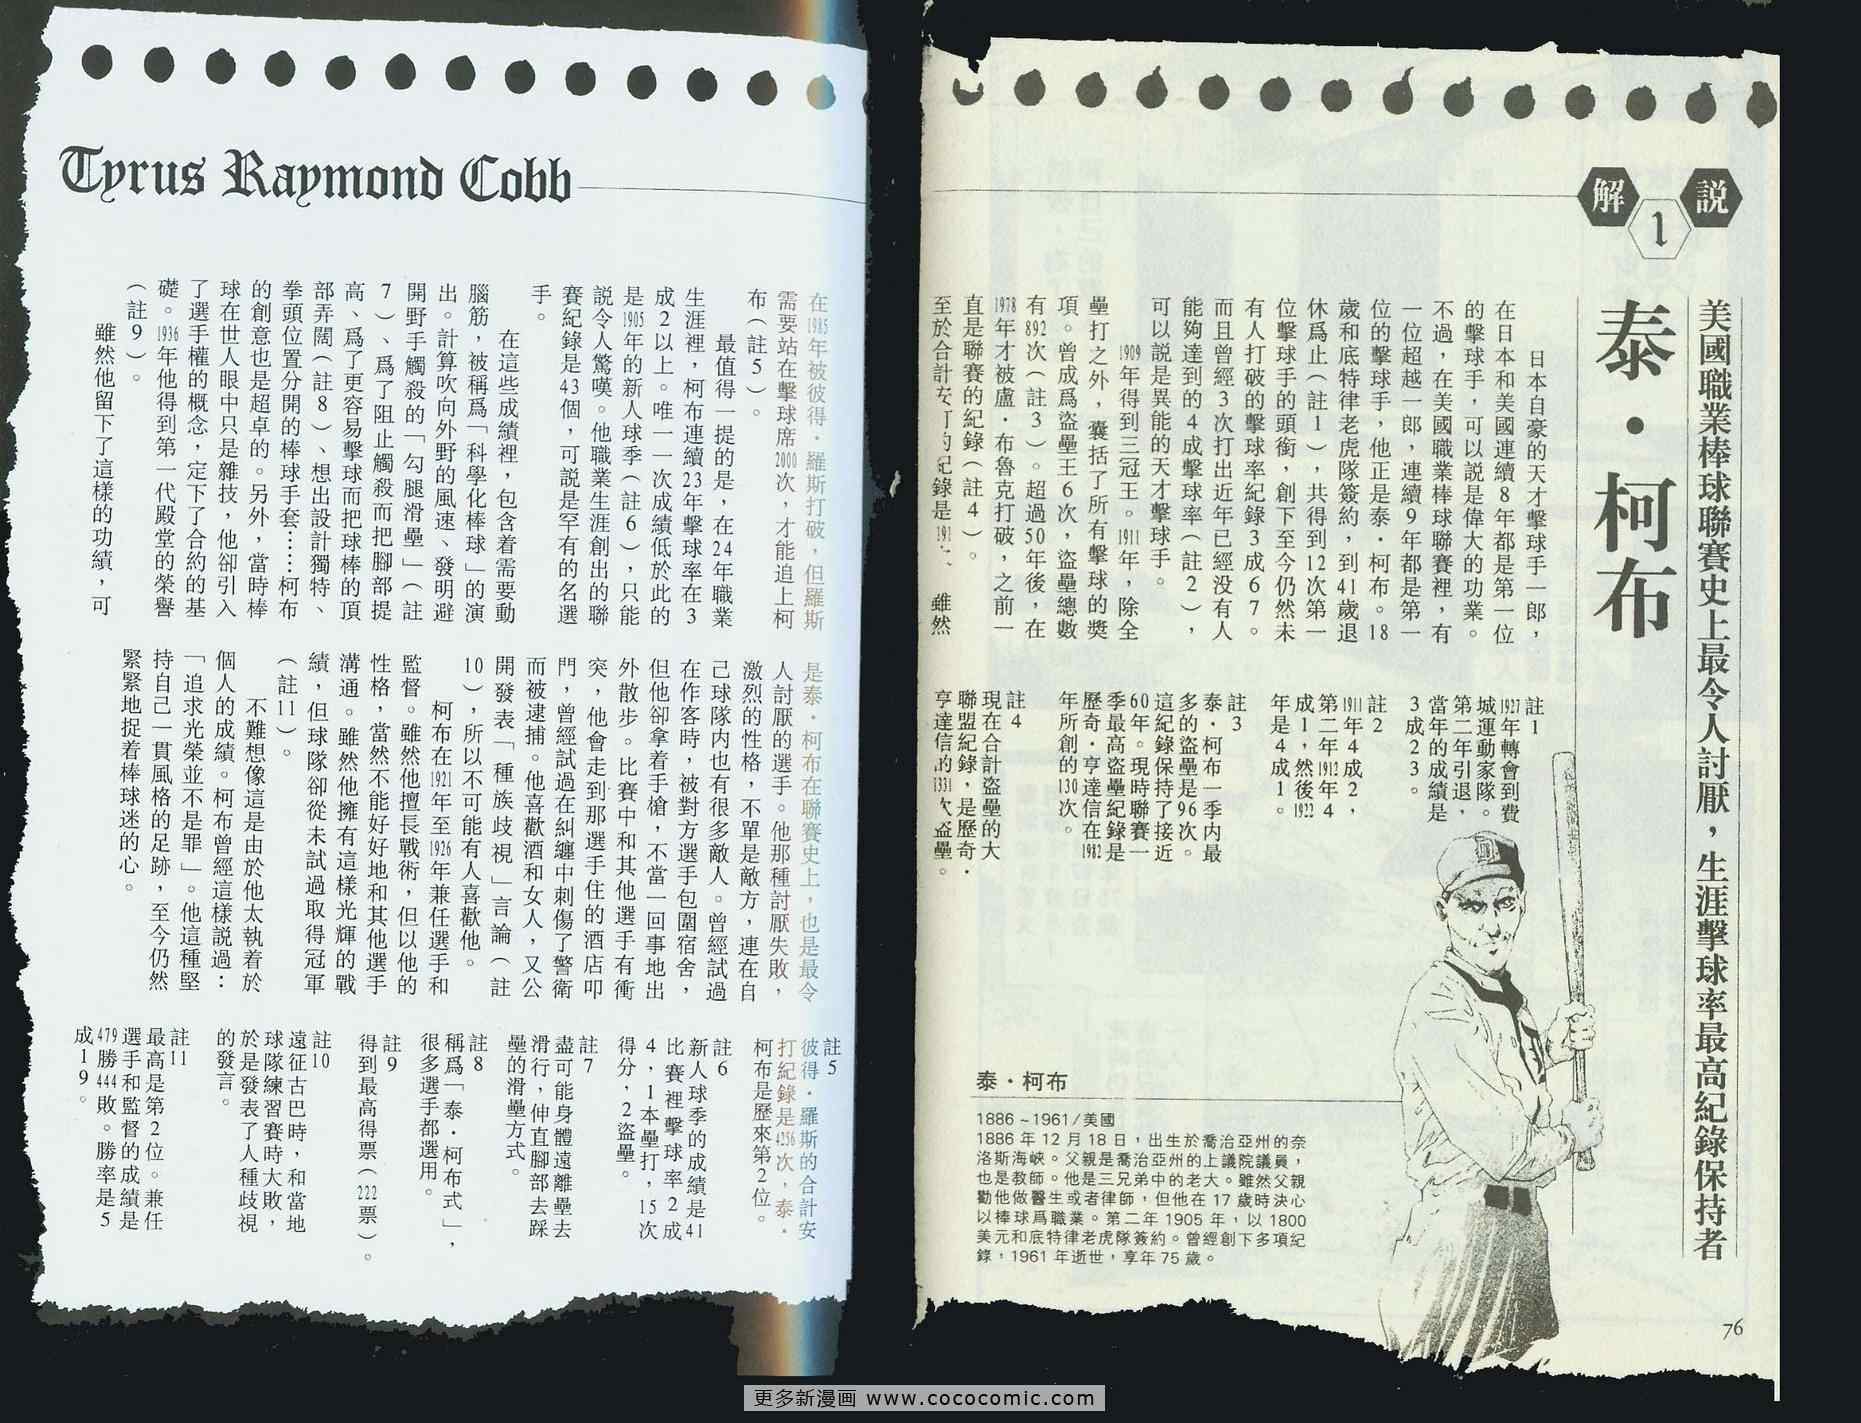 解
1
説
美國職業棒球聯賽史上最令人討厭，生涯擊球率最高紀錄保持者
泰・柯布
日本自豪的天才擊球手一郎，
在日本和美國連續8年都是第一位
的擊球手，可以説是偉大的功業。
不過，在美國職業棒球聯賽裡，有
一位超越一郎，連續9年都是第一
位的擊球手，他正是泰・柯布。18
歲和底特律老虎隊簽約，到41歲退
休爲止（註1），共得到12次第一
位擊球手的頭銜，創下至今仍然未
有人打破的擊球率紀錄3成67。
而且曾經3次打出近年已經没有人
能夠達到的4成擊球率（註2），
可以説是異能的天才擊球手。
1909年得到三冠王。1911年，除全
壘打之外，囊括了所有擊球的獎
項。曾成爲盜壘王6次，盜壘總數
有892次（註3）。超過50年後，在
1978年才被盧・布魯克打破，之前一
直是聯賽的紀錄（註4）。
雖然
至於合計安打的紀錄是191
註1
1927年轉會到費
城運動家隊。
第二年引退，
當年的成績是
3成23。
註2
1911年4成2，
第二年1912年4
成1，然後1922
年是4成1。
註3
泰・柯布一季内最
多的盜壘是96次。
這紀錄保持了接近
60年。現時聯賽一
季最高盜壘紀錄是
歷奇・亨達信在1982
年所創的130次。
註4
現在合計盜壘的大
聯盟紀錄，是歷奇・
亨達信的1331次盜壘。
泰・柯布
1886～1961/美國
1886年12月18日，出生於喬治亞州的奈
洛斯海峽。父親是喬治亞州的上議院議員，
也是教師。他是三兄弟中的老大。雖然父親
勸他做醫生或者律師，但他在17歲時決心
以棒球爲職業。第二年1905年，以1800
美元和底特律老虎隊簽約。曾經創下多項紀
錄，1961年逝世，享年75歲。
76
Tyrus Raymond Cobb
在1985年被彼得・羅斯打破，但羅斯
需要站在擊球席2000次，才能追上柯
布（註5）。
最值得一提的是，在24年職業
生涯裡，柯布連續23年擊球率在3
成2以上。唯一一次成績低於此的
是1905年的新人球季（註6），只能
説令人驚嘆。他職業生涯創出的聯
賽紀錄是43個，可説是罕有的名選
手。
在這些成績裡，包含着需要動
腦筋，被稱爲「科學化棒球」的演
出。計算吹向外野的風速、發明避
開野手觸殺的「勾腿滑壘」（註
7）、爲了阻止觸殺而把腳部提
高、爲了更容易擊球而把球棒的頂
部弄闊（註8）、想出設計獨特、
拳頭位置分開的棒球手套……柯布
的創意也是超卓的。另外，當時棒
球在世人眼中只是雜技，他卻引入
了選手權的概念，定下了合約的基
礎。1936年他得到第一代殿堂的榮譽
（註9）。
雖然他留下了這樣的功績，可
是泰・柯布在聯賽史上，也是最令
人討厭的選手。他那種討厭失敗，
激烈的性格，不單是敵方，連在自
己球隊内也有很多敵人。曾經試過
在作客時，被對方選手包圍宿舍，
但他卻拿着手槍，不當一回事地出
外散步。比賽中和其他選手有衝
突，他會走到那選手住的酒店叩
門，曾經試過在糾纏中刺傷了警衛
而被逮捕。他喜歡酒和女人，又公
開發表「種族歧視」言論（註
10），所以不可能有人喜歡他。
柯布在1921年至1926年兼任選手和
監督。雖然他擅長戰術，但以他的
性格，當然不能好好地和其他選手
溝通。雖然他擁有這樣光輝的戰
績，但球隊卻從未試過取得冠軍
（註11）。
不難想像這是由於他太執着於
個人的成績。柯布曾經這樣説過：
「追求光榮並不是罪」。他這種堅
持自己一貫風格的足跡，至今仍然
緊緊地捉着棒球迷的心。
註5
彼得・羅斯的合計安
打紀錄是4256次，泰・
柯布是歷來第2位。
註6
新人球季的成績是41
比賽裡擊球率2成
4，1本壘打，15次
得分，2盜壘。
註7
盡可能身體遠離壘去
滑行，伸直腳部去踩
壘的滑壘方式。
註8
稱爲「泰・柯布式」，
很多選手都選用。
註9
得到最高得票（222票）。
註10
遠征古巴時，和當地
球隊練習賽時大敗，
於是發表了人種歧視
的發言。
註11
最高是第2位。兼任
選手和監督的成績是
479勝444敗。勝率是5
成19。
更多新漫画 www.cococomic.com